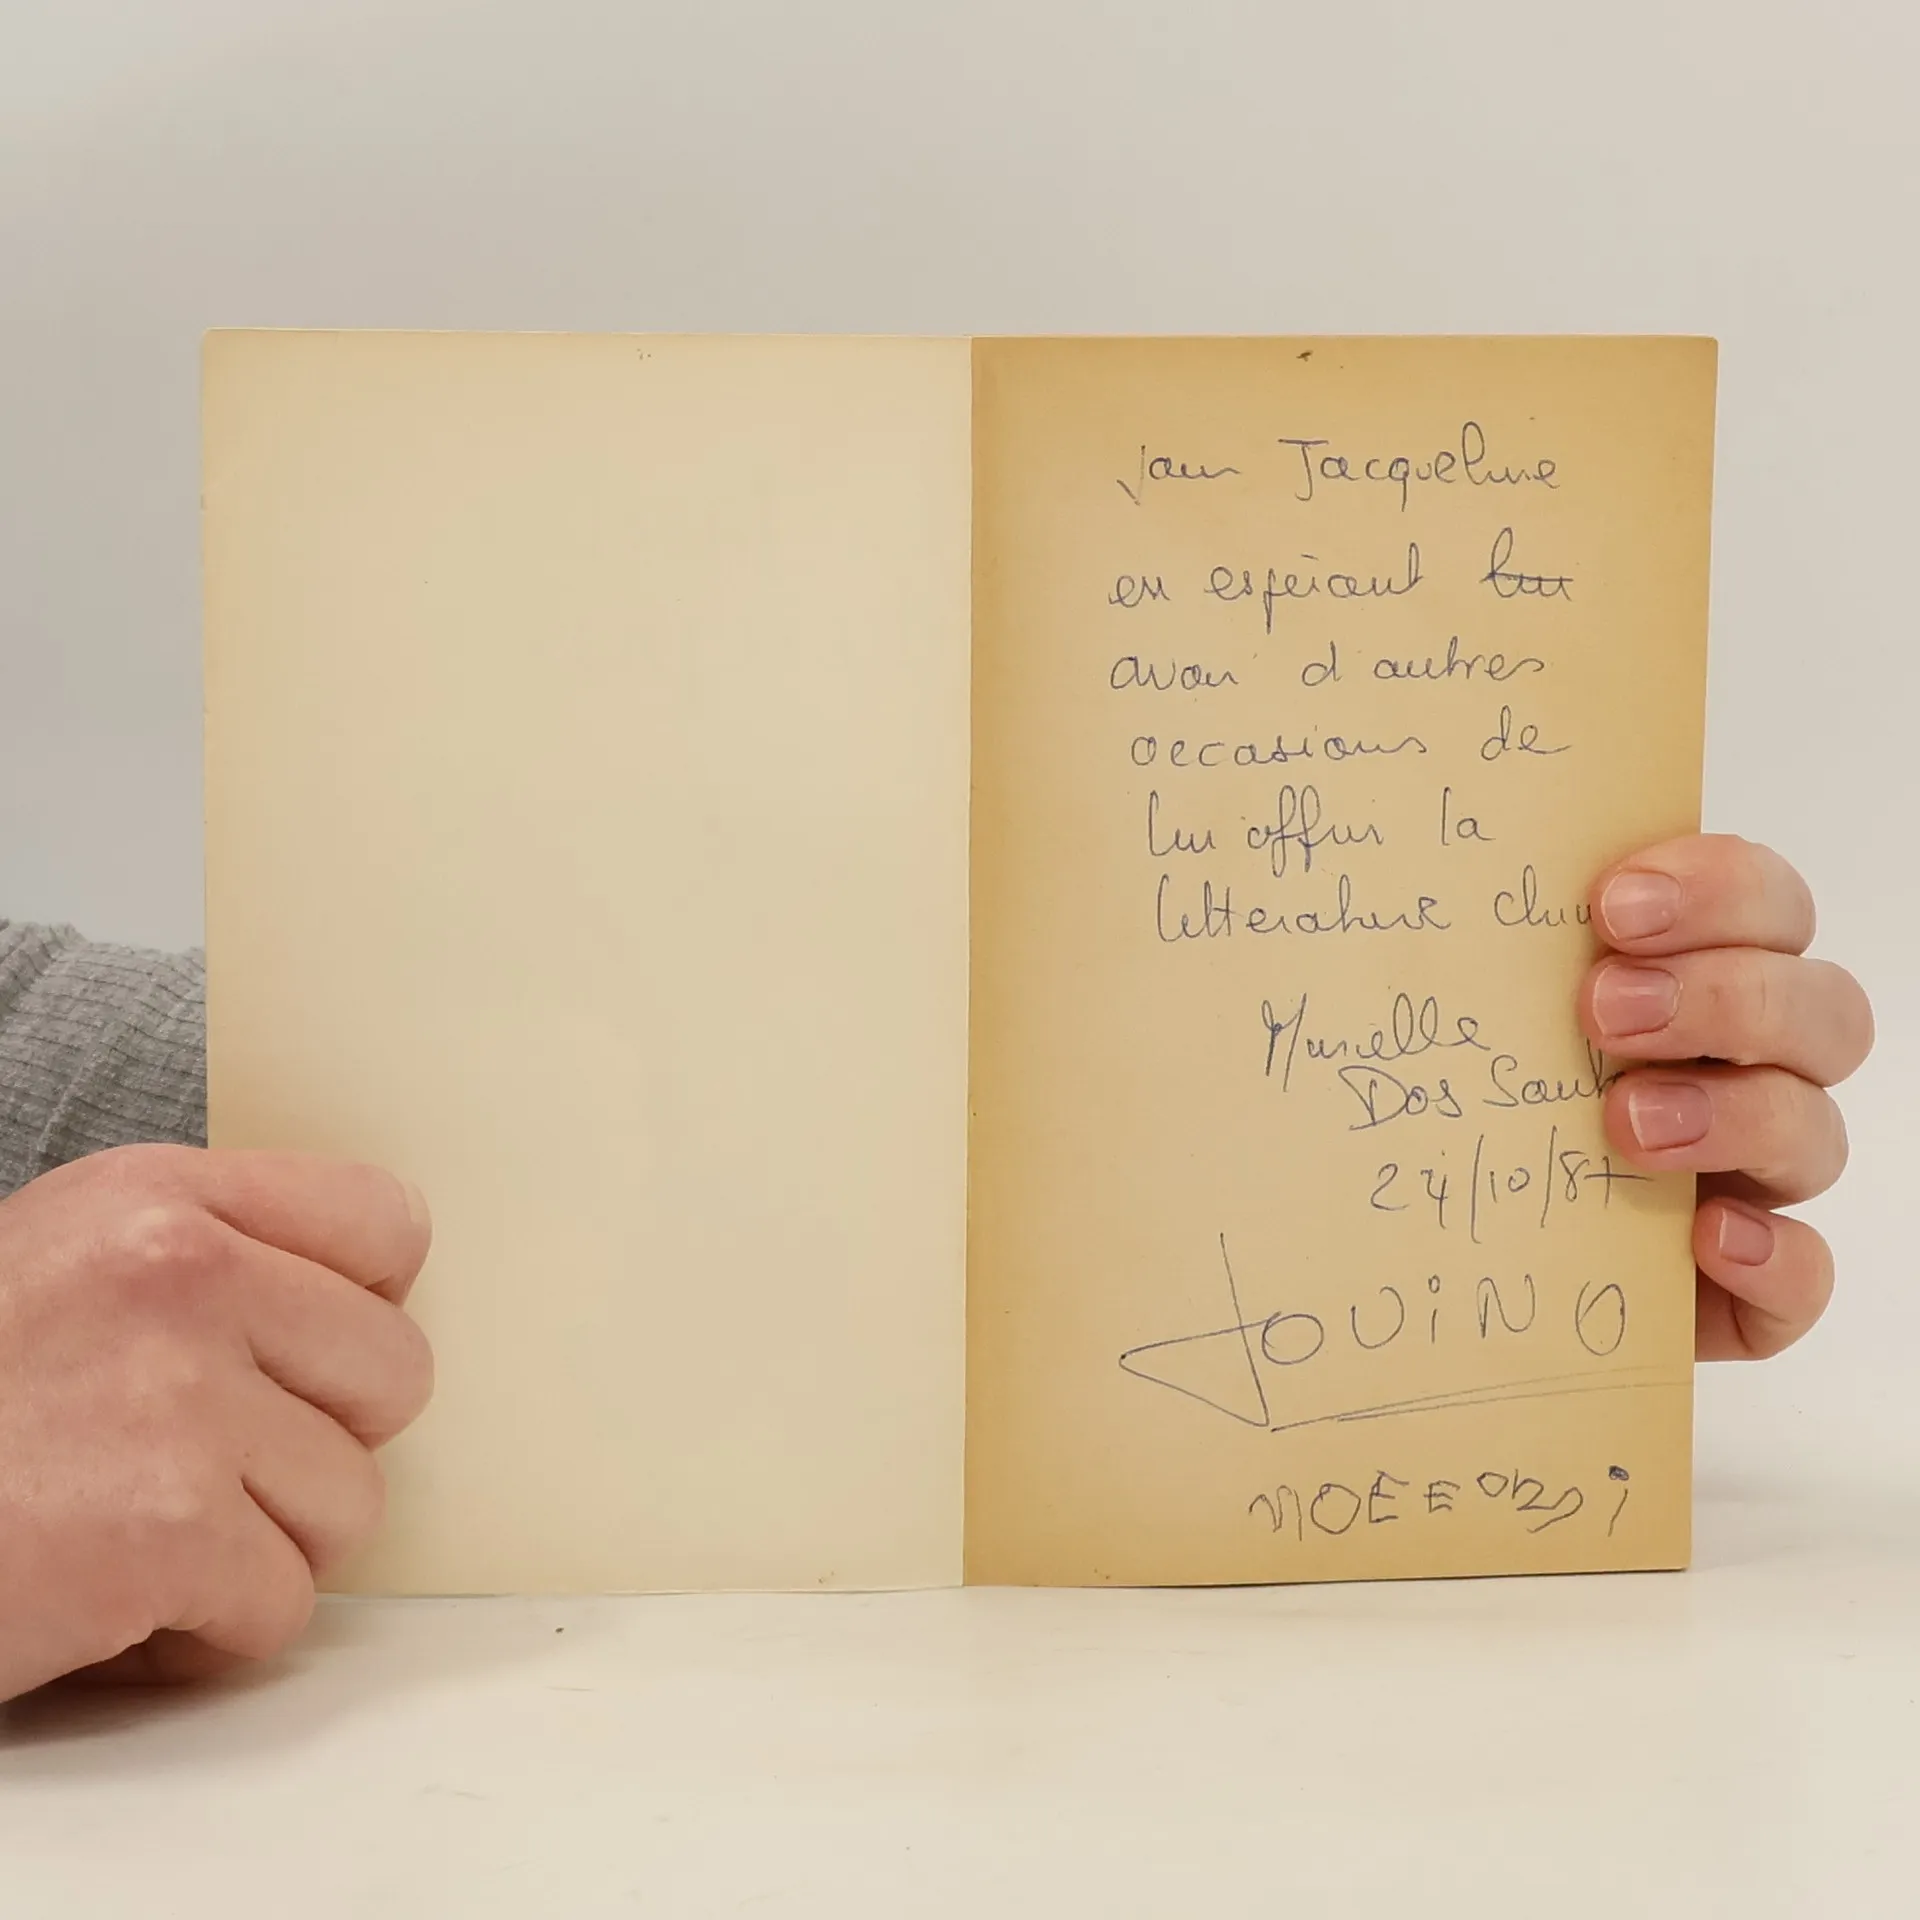 pour Jacqueline
en espérant lui
avoir d'autres
occasions de
lui offrir la
litterature
Murielle
Dos
24/10/87
JOUINO